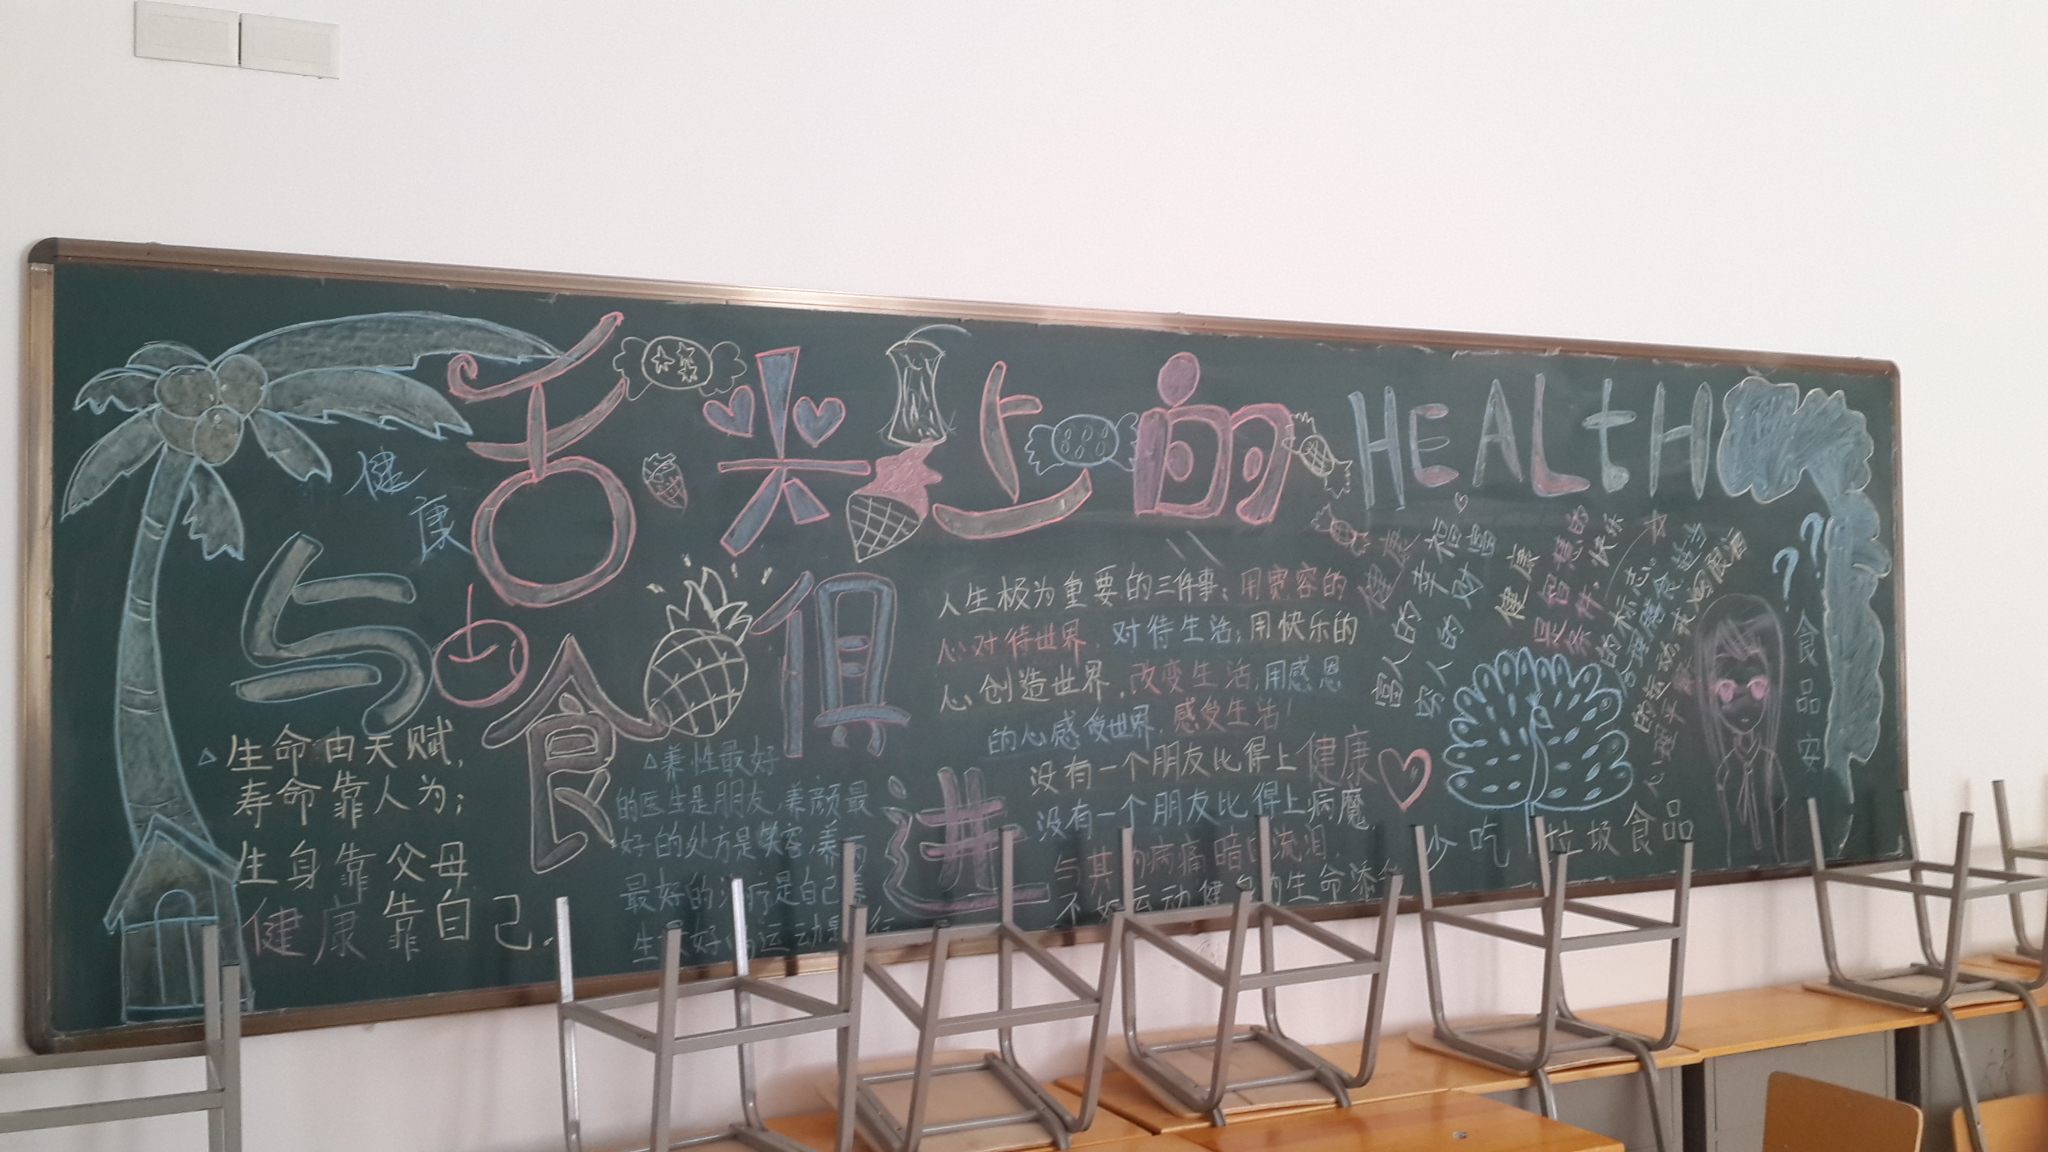 舌尖上的
HEALtH
健
康
与食俱进
生命由天赋,
寿命靠人为;
生身靠父母
健康靠自己.
△养性最好
的医生是朋友,养颜最
好的处方是笑容,养
最好的治疗是自己
人生极为重要的三件事:用宽容的
心对待世界,对待生活;用快乐的
心创造世界,改变生活;用感恩
的心感受世界,感受生活!
没有一个朋友比得上健康
没有一个朋友比得上病魔,
与其 病痛暗 流泪
不如运动健身 生命添
健康
幸福
富人的
穷人的财富
健康
是智慧的
条件,快乐
的标志。
合理膳食适当
的运动,戒烟限酒
心理平
少吃垃圾食品
??
食品安